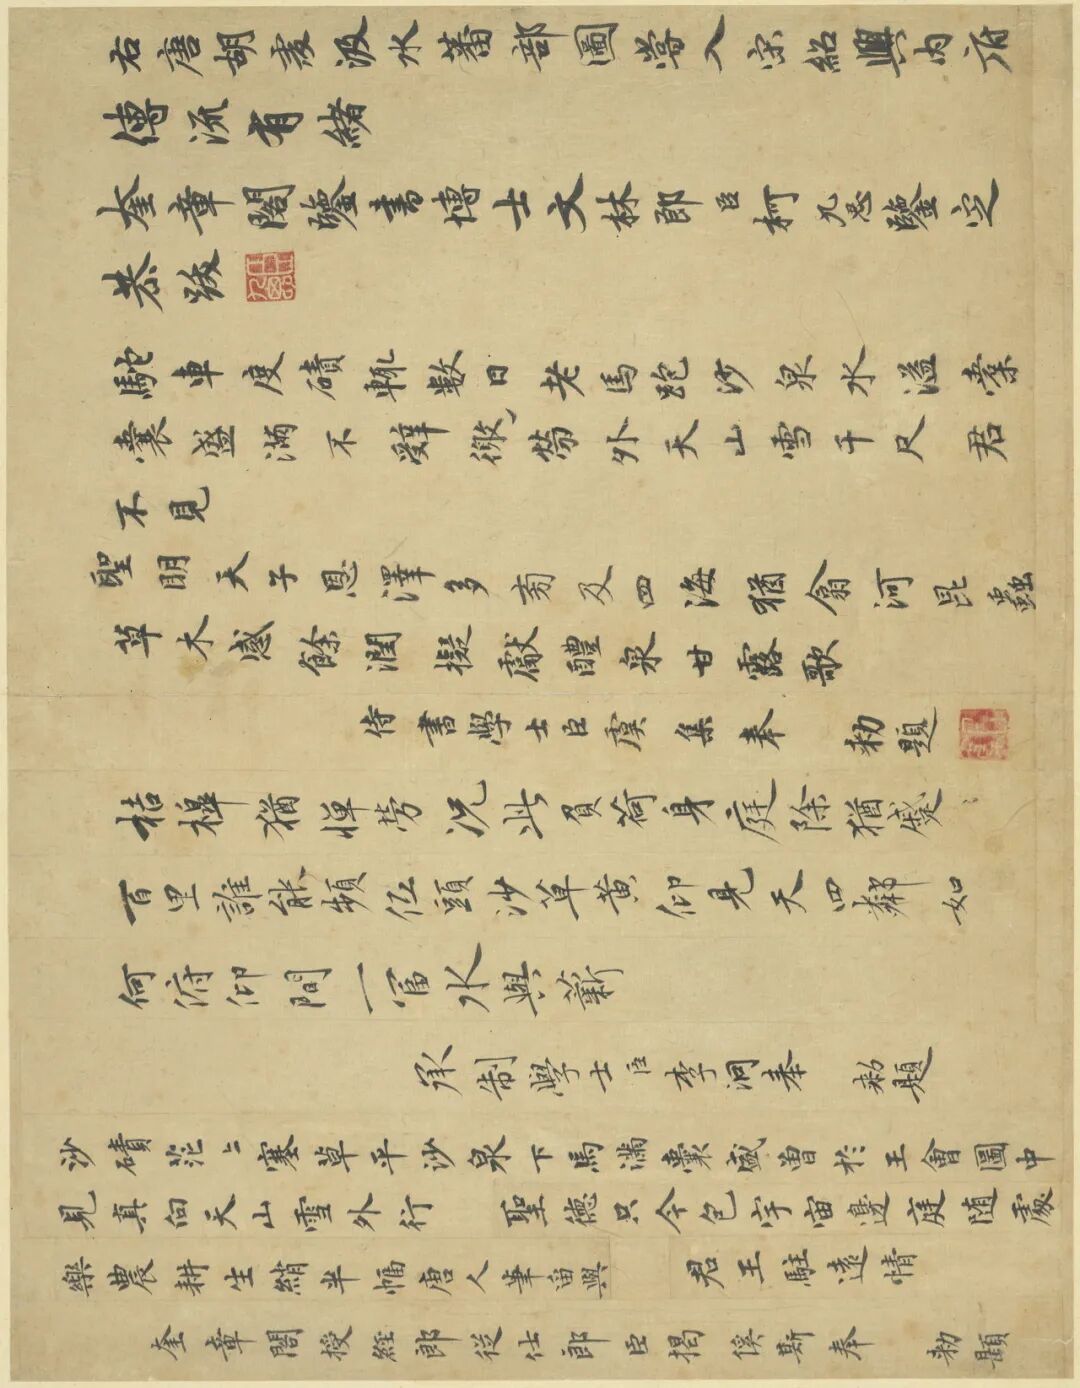 右唐胡虔汲水蕃部圖嘗入宋紹興內府
傳流有緒
奎章閣鑒書博士文林郎臣柯九思鑒定
恭跋
駝車度磧輒數日老馬跑沙泉水溢橐
囊盛滿不辭徼勞外天山雪千尺君
不見
聖明天子恩澤多旁及四海猶翕河昆蟲
草木感餘潤擬獻醴泉甘露歌
侍書學士臣虞集奉 勅題
桔槔猶憚勞況此負荷身庭除猶蹙
百里誰能頻低頭沙草黃仰見天四鄰如
何俯仰間一富水與薪
承制學士臣李泂奉 勅題
沙磧茫〻塞草平沙泉下馬滿囊盛曾於王會圖中
見真向天山雪外行 聖德只今包宇宙邊庭隨處
樂農耕生綃半幅唐人筆留與 君王駐遠情
奎章閣授經郎從仕郎臣揭傒斯奉 勅題